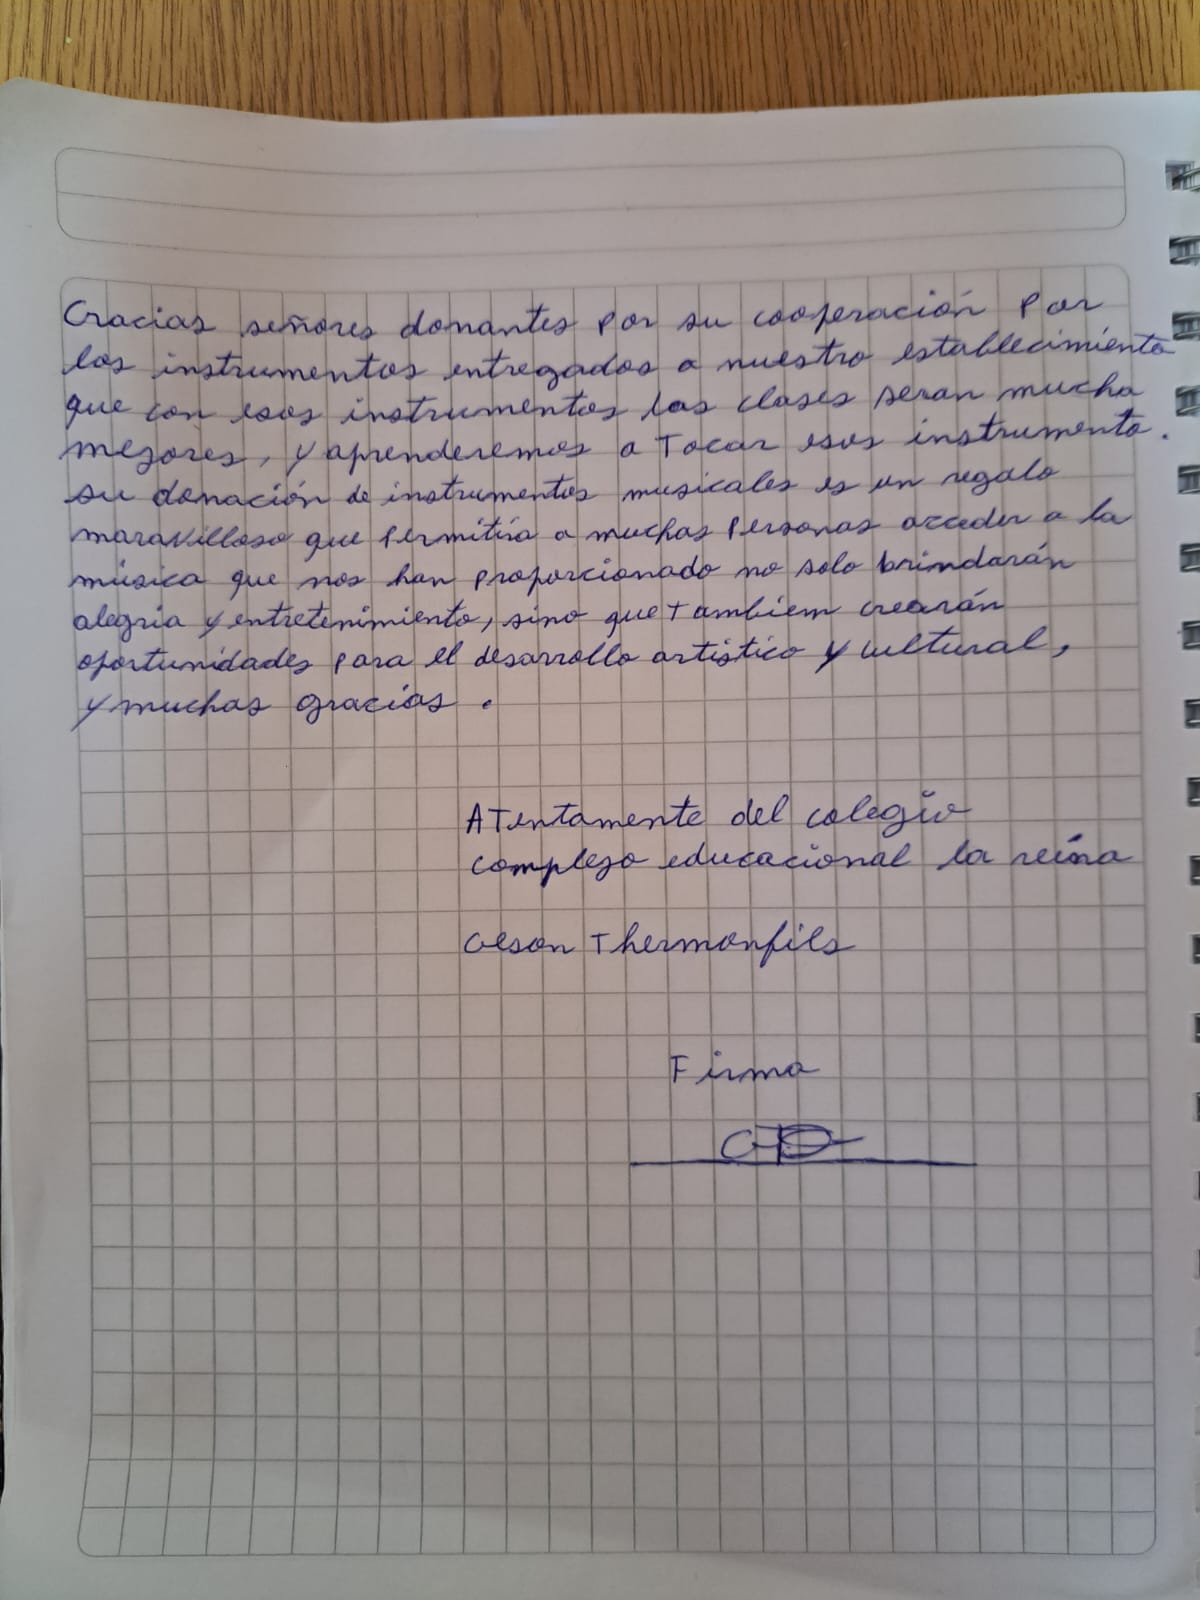 Gracias señores donantes por su cooperación por
los instrumentos entregados a nuestro establecimiento
que con esos instrumentos las clases seran mucha
mejores, y aprenderemos a Tocar esos instrumento.
su donación de instrumentos musicales es un regalo
maravilloso que permitira a muchas personas acceder a la
música que nos han proporcionado no solo brindarán
alegria y entretenimiento, sino que tambiem crearán
oportunidades para el desarrollo artistico y cultural,
y muchas gracias.
ATentamente del colegio
complejo educacional la reina
Geson Thermonfils
Firma